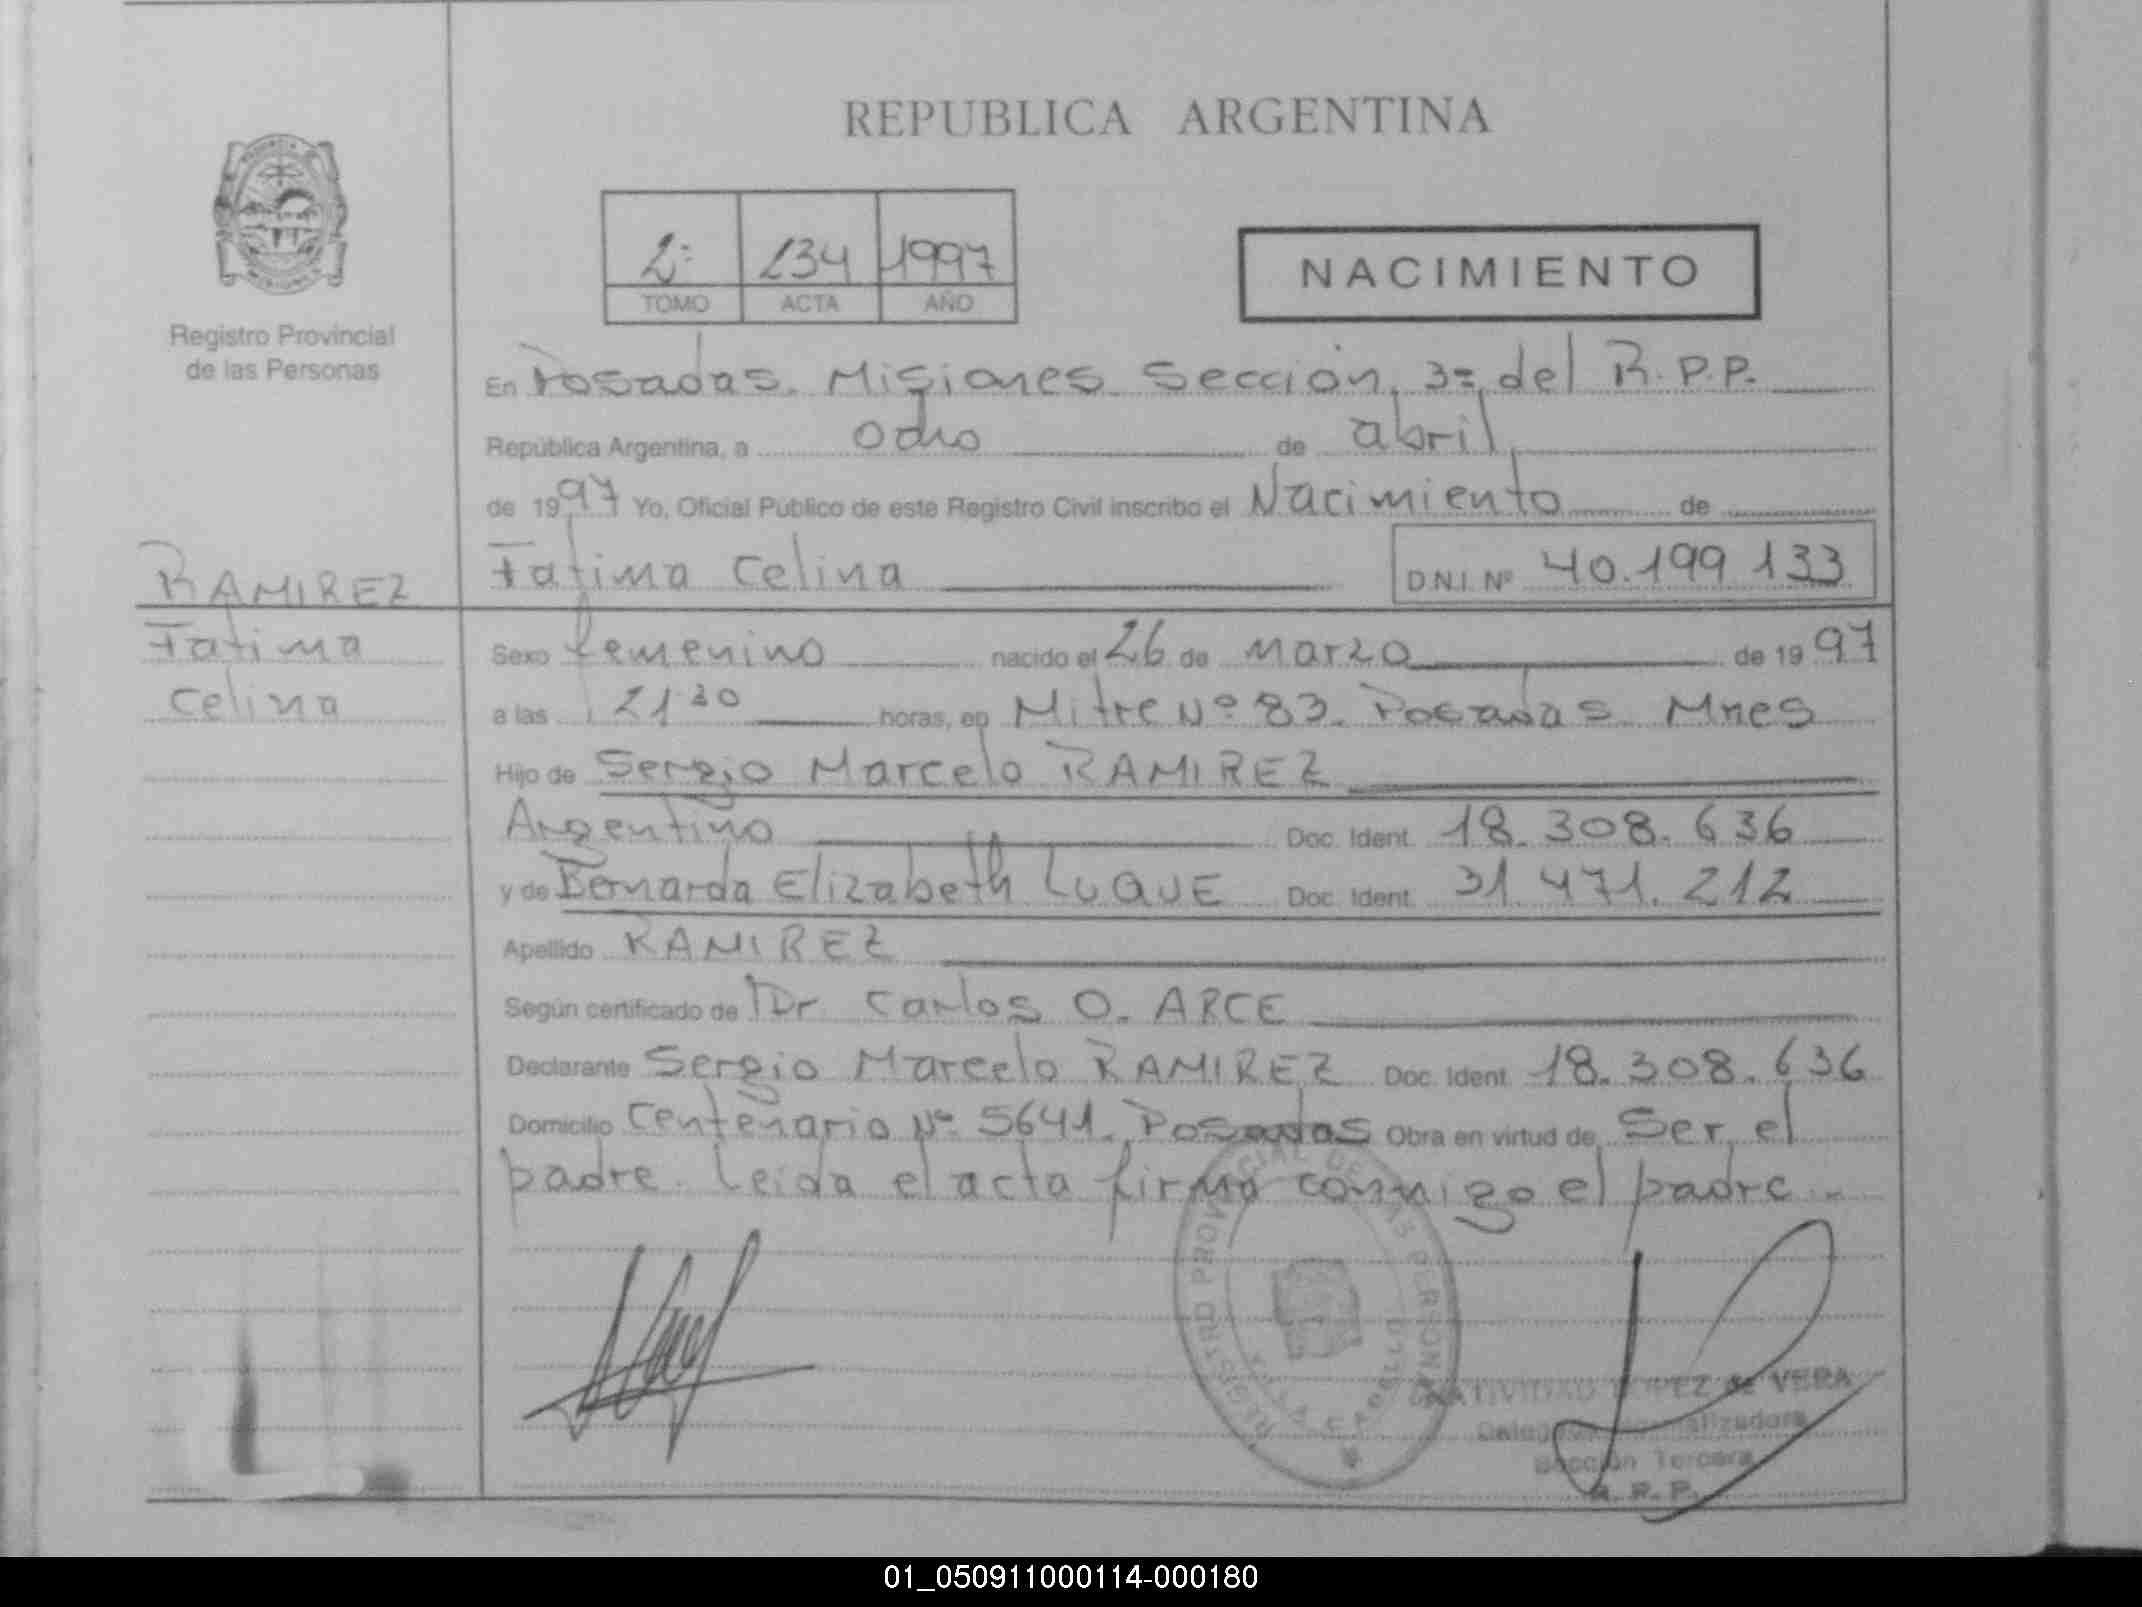 REPUBLICA ARGENTINA
2º 234 1997
TOMO ACTA AÑO
NACIMIENTO
Registro Provincial
de las Personas
En Posadas. Misiones. Sección 3ª del R.P.P.
República Argentina, a ocho de abril
de 1997 Yo, Oficial Público de este Registro Civil inscribo el Nacimiento de
RAMIREZ
Fatima Celina
D.N.I. Nº 40.199 133
Fatima
Celina
Sexo femenino nacido el 26 de marzo de 1997
a las horas, en Mitre Nº 83. Posadas Mnes
Hijo de Sergio Marcelo RAMIREZ
Argentino Doc. Ident. 18.308.636
y de Bernarda Elizabeth LUQUE Doc. Ident. 31.471.212
Apellido RAMIREZ
Según certificado de Dr. Carlos O. ARCE
Declarante Sergio Marcelo RAMIREZ Doc. Ident. 18.308.636
Domicilio Centenario Nº 5641. Posadas Obra en virtud de Ser el
padre. Leida el acta firma conmigo el padre
REGISTRO PROVINCIAL DE LAS PERSONAS
VILLA CABELLO
NATIVIDAD LOPEZ de VERA
Sección Tercera
R. P. P.
01_050911000114-000180